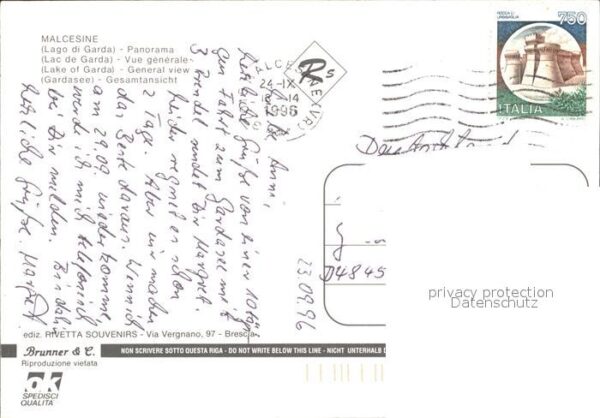 MALCESINE
(Lago di Garda) - Panorama
(Lac de Garda) - Vue générale
(Lake of Garda) - General view
(Gardasee) - Gesamtansicht
24-IX
1996
ROCCA DI
URBISAGLIA
750
ITALIA
Anni,
herzliche Grüße von einer 10tägi
gen Fahrt zum Gardasee mit
sendet Dir Margret.
Leider regnet es schon
2 Tage. Aber wir machen
das Beste daraus. Wenn ich
am 29.09. wieder komme,
werde ich mich telefonisch
bei Dir melden. Bis dahin
herzliche Grüße. Margret
23.09.96
D4845
privacy protection
Datenschutz
ediz. RIVETTA SOUVENIRS - Via Vergnano, 97 - Brescia
Brunner & C.
NON SCRIVERE SOTTO QUESTA RIGA - DO NOT WRITE BELOW THIS LINE - NICHT UNTERHALB D
Riproduzione vietata
ok
SPEDISCI
QUALITÀ